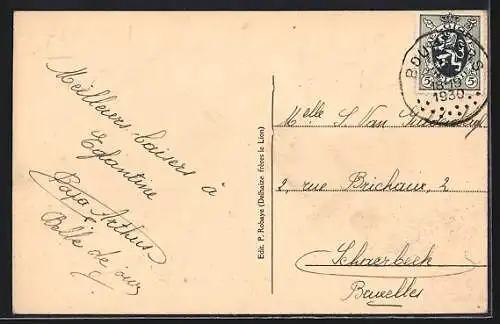 Meilleurs baisers à
Eglantine
Papa Arthur
Belle de jour
Edit. P. Robaye (Delhaize frères le Lion)
5 5
18-19
1930
Melle S. Van
2, rue Brichaux, 2
Schaerbeek
Bruxelles